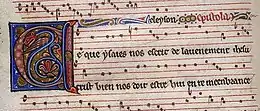 eleyson. Epistola
Ce que ysaies nos escrit de lauenement ihesu
crist bien nos doit estre hui en re menbrance